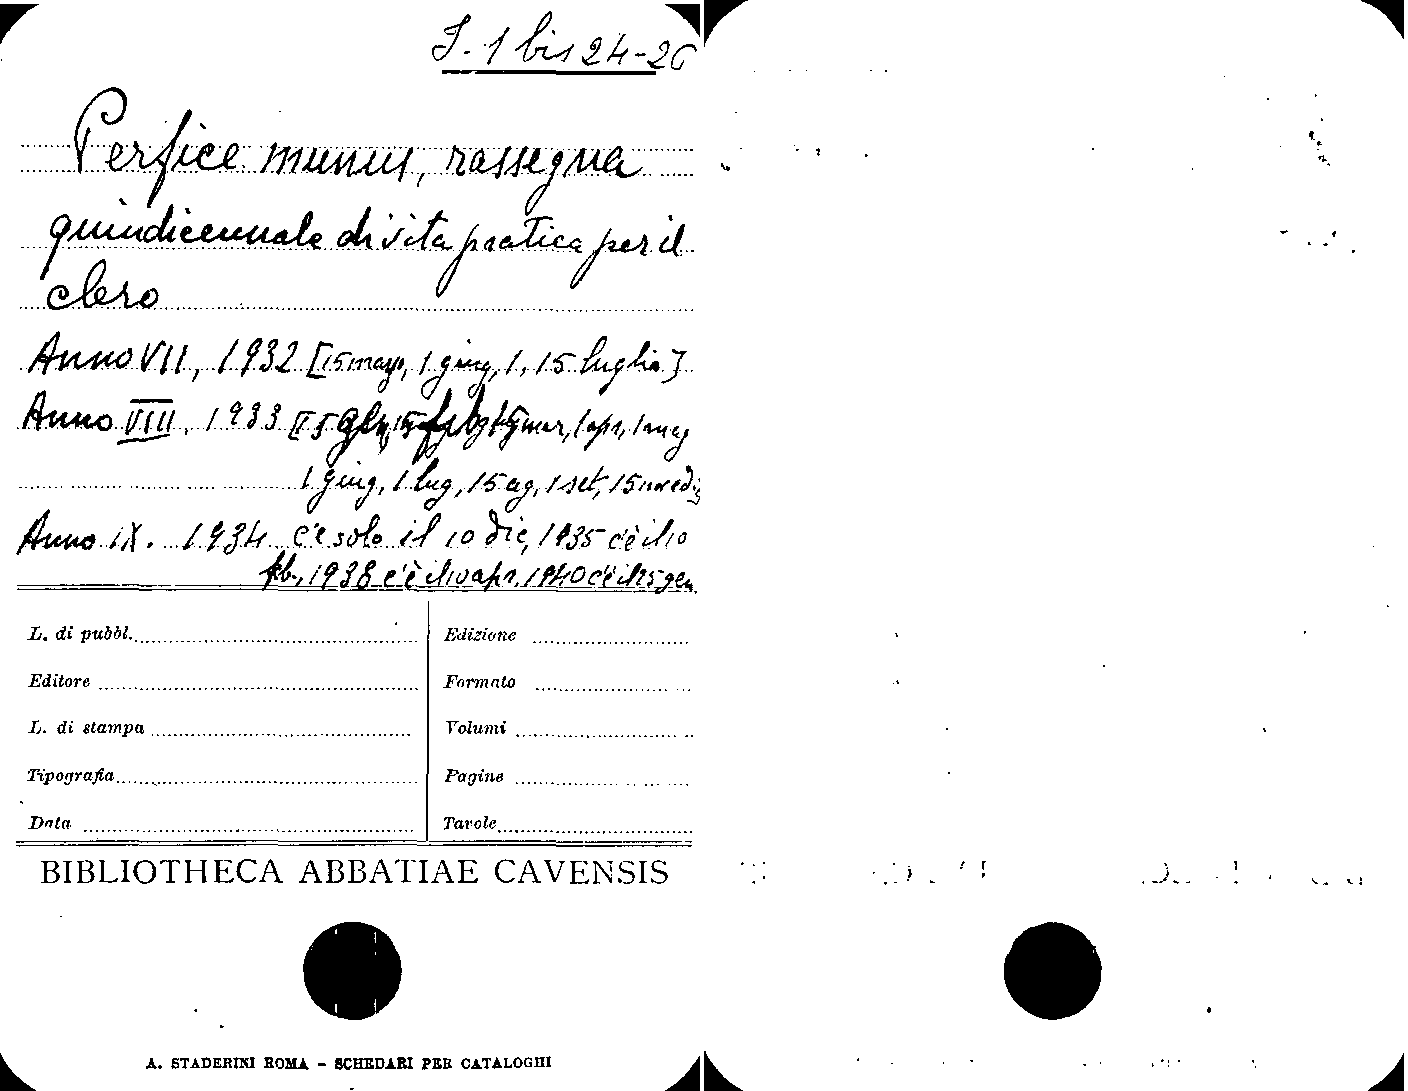 I. 1 bis 24-26
Perfice munus, rassegna
quindicennale di vita pratica per il
clero
Anno VII, 1932 [15 magg, 1 giug, 1, 15 luglio]
Anno VIII, 1933 mar, 1 apr, 1 mag
1 giug, 1 lug, 15 ag, 1 set, 15 nov e dic
Anno IX. 1934 c'è solo il 10 dic, 1935 c'è il 10
feb., 1938 c'è il 10 apr. 1940 c'è il 25 gen.
L. di pubbl.
Edizione
Editore
Formato
L. di stampa
Volumi
Tipografia
Pagine
Data
Tavole
BIBLIOTHECA ABBATIAE CAVENSIS
A. STADERINI ROMA - SCHEDARI PER CATALOGHI